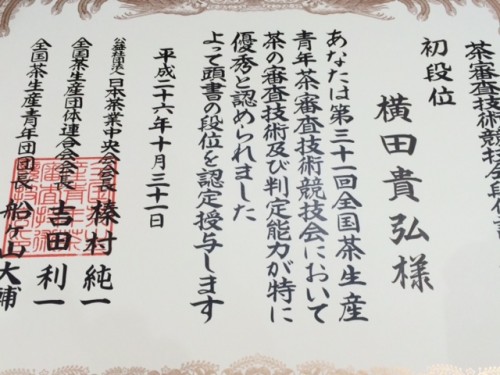 茶審査技術競技会段位証
初段位
横田貴弘様
あなたは第三十一回全国茶生産
青年茶審査技術競技会において
茶の審査技術及び判定能力が特に
優秀と認められました
よって頭書の段位を認定授与します
平成二十六年十月三十一日
公益社団法人日本茶業中央会会長 榛村純一
全国茶生産団体連合会会長 吉田利一
全国茶生産青年団団長 船ヶ山大輔